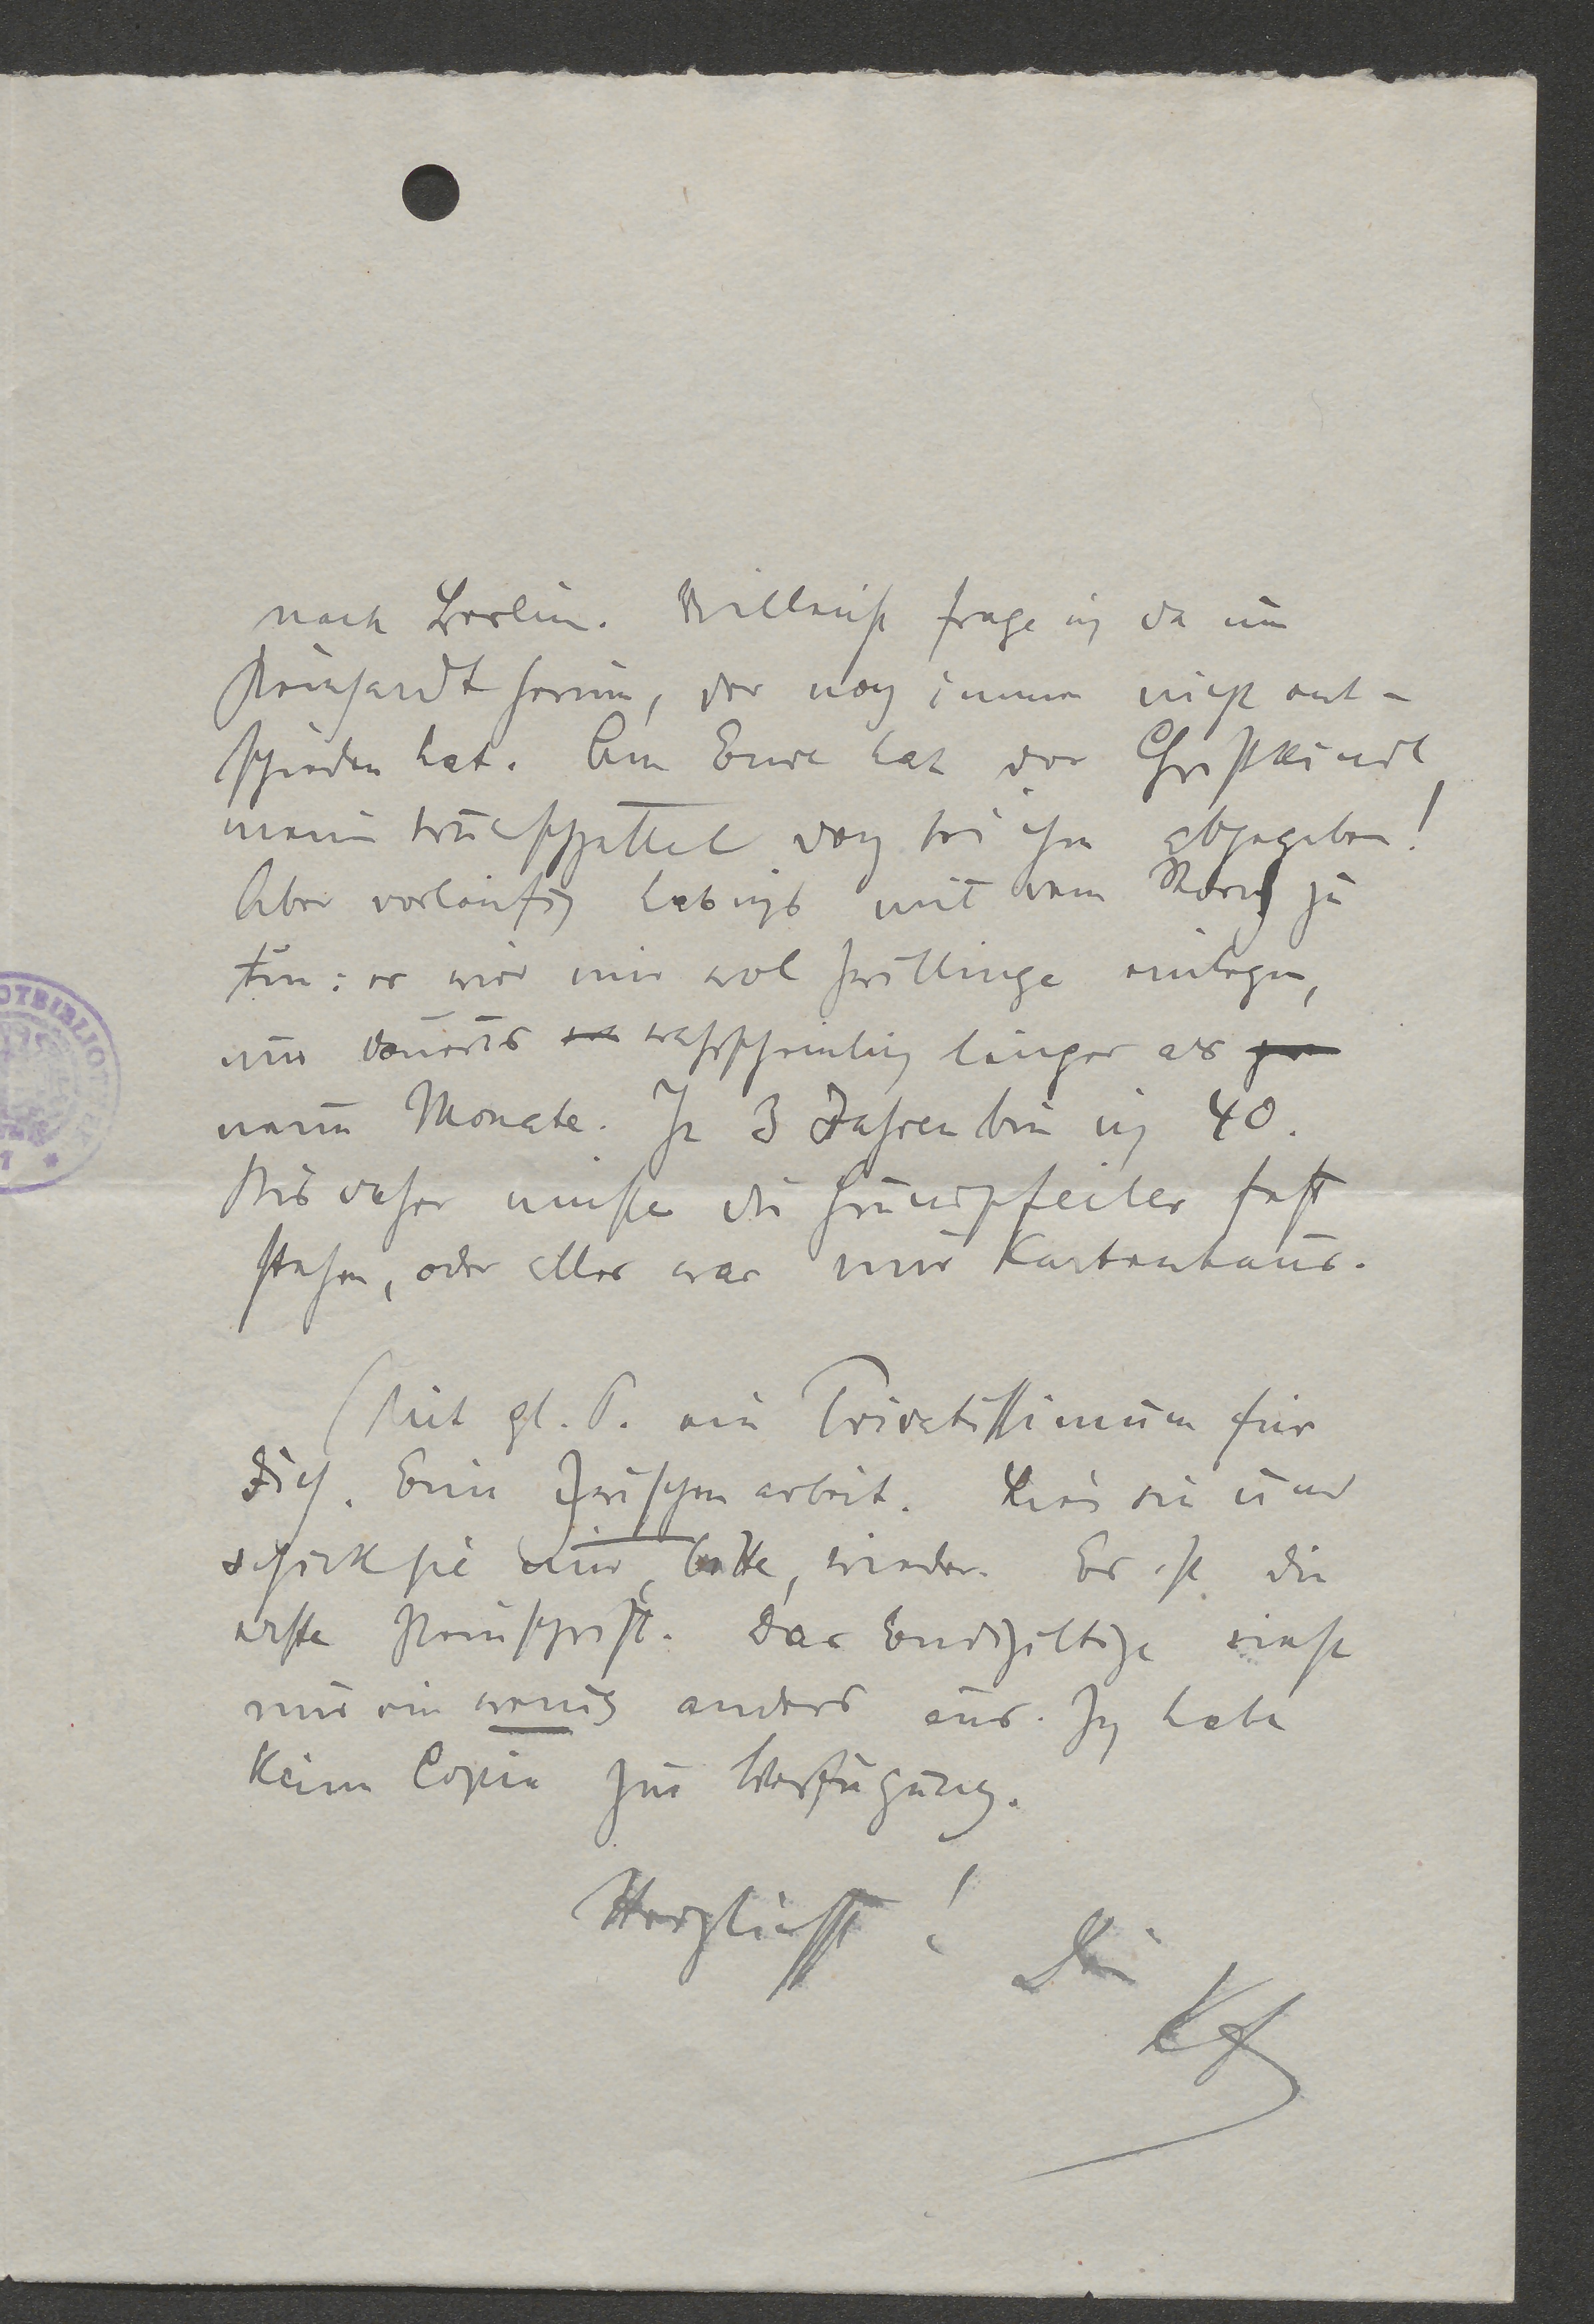 nach Berlin. Villeicht frage ich da um
Reinhardt herum, der noch immer nicht ent-
schieden hat. Am Ende hat das Christkindl
meinen Wunschzettel doch bei ihm abgegeben!
Aber vorläufig hab ichs mit dem Storch zu
tun: er wird mir wol Zwillinge einlegen,
nur dauerts wahrscheinlich länger als
neun Monate. In 3 Jahren bin ich 40.
Bis daher müssen die Grundpfeiler fest
stehen, oder alles war nur Kartenhaus.
(Mit gl. P. ein Privatissimum für
Dich. Eine Zwischenarbeit. Lies sie und
schick sie mir, bitte, wieder. Es ist die
erste Reinschrift. Das Endgiltige sieht
nur ein wenig anders aus. Ich habe
keine Copie zur Verfügung.
Herzlichst! Dein